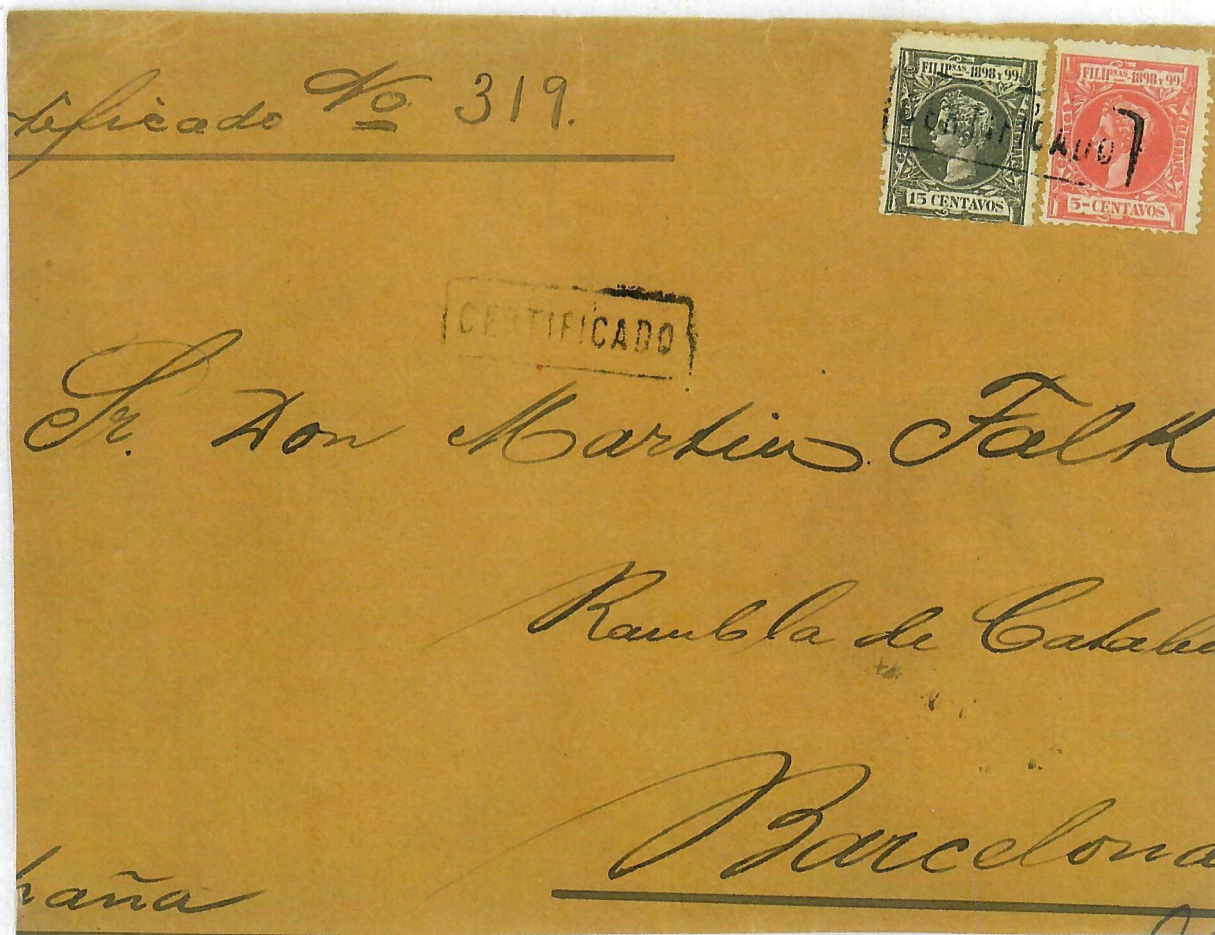 tificado No 319.
FILIPNAS. 1898 Y 99.
15 CENTAVOS
FILIPNAS. 1898 Y 99.
5-CENTAVOS
CERTIFICADO
CERTIFICADO
Sr. Don Martin Falk
Rambla de Catalu
Barcelona
paña